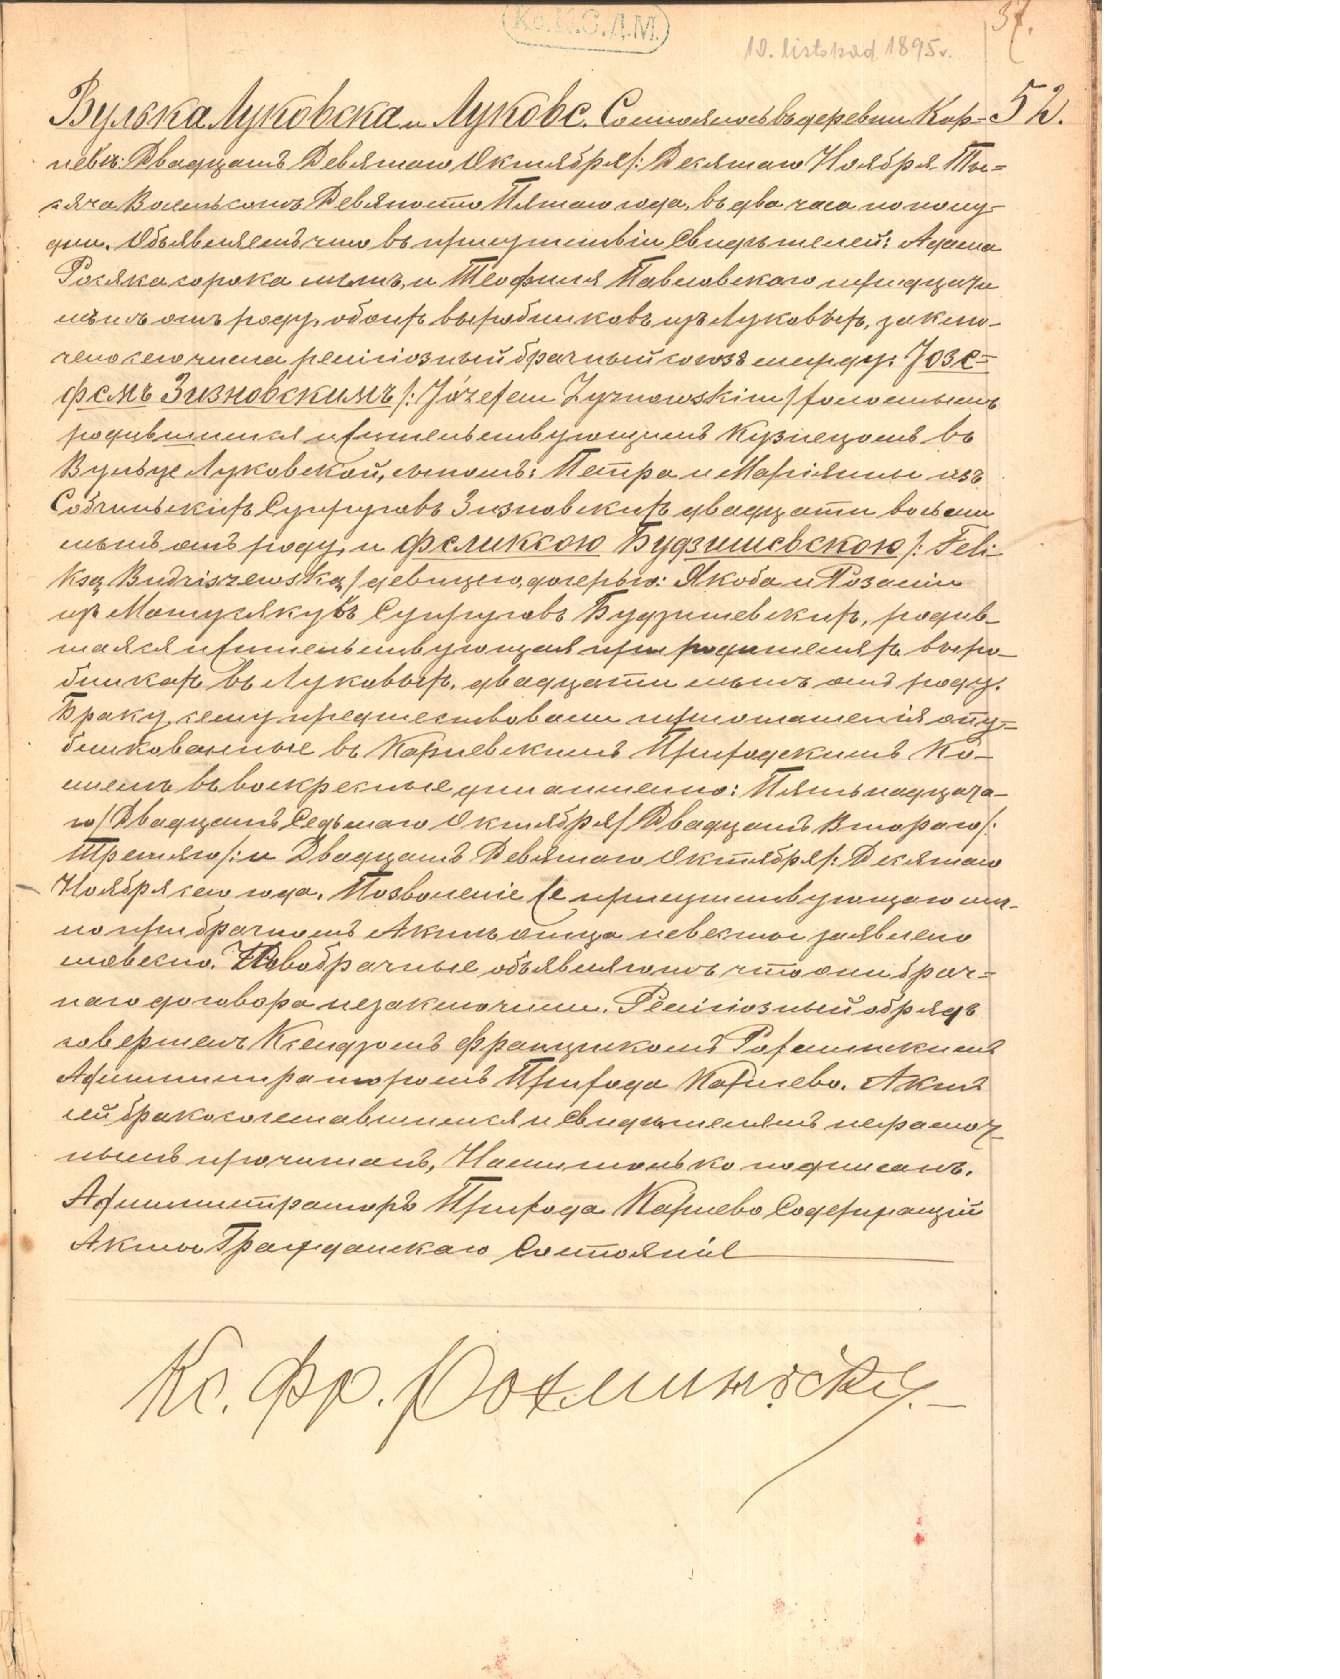 Кс.К.С.Л.М.
37.
10. listopad 1895 r.
Вулька Луковска и Луковс. Состоялось въ деревни Кар- 52.
невъ: Двадцать Девятаго Октября/: Десятаго Ноября Ты-
сяча Восемьсотъ Девяносто Пятаго года, въ два часа по полу-
дни. Объявляемъ что въ присутствіи Свидѣтелей: Адама
Росяка сорока лѣтъ, и Теофиля Павловскаго тридцати
лѣтъ отъ роду, обоихъ выробниковъ изъ Луковѣхъ, заклю-
чено сего числа религіозный брачный союзъ между: Юзе-
фемъ Зизновскимъ /: Józefem Zyznowskim/ холостымъ
родившимся и жительствующимъ Кузнецомъ въ
Вульце Луковской, сыномъ: Петра и Маріянны изъ
Собчинскихъ Супруговъ Зизновскихъ двадцати восьми
лѣтъ отъ роду, и Феликсою Будзишевскою /: Feli-
ksą Budziszewską/ девицею, дочерью: Якоба и Розаліи
изъ Матусякувъ Супруговъ Будзишевскихъ, родив-
шаяся и жительствующая при родителяхъ выро-
бникахъ въ Луковѣхъ, двадцати лѣтъ отъ роду.
Браку сему предшествовали приглашенія опу-
бликованные въ Карневскимъ Приходскимъ Ко-
стелъ въ воскресные дни а именно: Пятьнадцата-
го/Двадцать Седьмаго Октября/ Двадцать Втораго/:
Третяго/: и Двадцать Девятаго Октября/: Десятаго
Ноября сего года. Позволеніе же присутствующаго лич-
но при брачномъ Актъ отца невесты заявлено
словесно. Новобрачные объявляютъ что они брач-
наго договора незаключили. Религіозный обрядъ
совершелъ Ксендзомъ Францишкомъ Рохминскимъ
Администраторомъ Прихода Карнево. Актъ
сей бракосочетавшимся и Свидѣтелямъ неграмот-
нымъ прочитанъ, Нами только подписанъ.
Администраторъ Прихода Карнево Содержащій
Акты Гражданскаго Состоянія
Кс. Фр. Рохминскій.